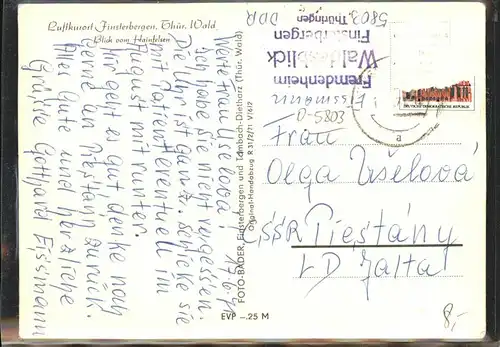 Luftkurort Finsterbergen, Thür. Wald
Blick vom Hainfelsen
Werte Frau Uselova!
Ich habe sie nicht vergessen.
Die Uhr ist ganz. schicke sie
mit Datier eventuel im
August mit runter
Mir geht es gut, denke noch
gerne an Piestann zurück.
Alles Gute und herzliche
Grüsse Gotthard Eissmann
FOTO-BÄDER, Finsterbergen und Tambach-Dietharz (Thür. Wald)
Original-Handabzug R 31/2/71 V/6/2
EVP –.25 M
Fremdenheim
Waldesblick
Finsterbergen
5803 Thüringen
DDR
Eissmann
D-5803
Frau
Olga Uselová
ČSSR Piestany
LD Jalta
8,-
DEUTSCHE DEMOKRATISCHE REPUBLIK